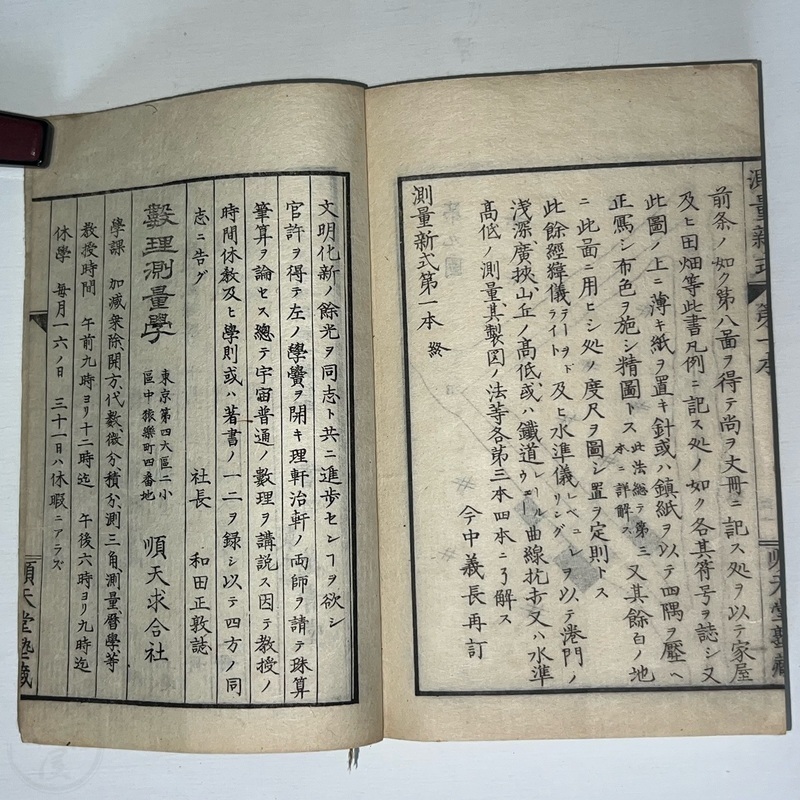 測量新式 第一本
順天堂塾藏
前条ノ如ク第八啚ヲ得テ尚ヲ丈冊ニ記ス処ヲ以テ家屋
及ヒ田畑等此書凡例ニ記ス処ノ如ク各其符号ヲ誌シ又
此圖ノ上ニ薄キ紙ヲ置キ針或ハ鎮紙ヲ以テ四隅ヲ壓ヘ
正寫シ布色ヲ施シ精圖トス 此法総テ第三本ニ詳解ス 又其餘白ノ地
ニ此啚ニ用ヒシ処ノ度尺ヲ圖シ置ヲ定則トス
此餘經緯儀テーヲドライト及ヒ水準儀レベュレリングヲ以テ港門ノ
浅深、廣挾、山丘ノ高低、或ハ鐵道レールウェー曲線抗夲又ハ水準
高低ノ測量其製図ノ法等各第三本四本ニ了解ス
今中義長再訂
測量新式第一本 終
文明化新ノ餘光ヲ同志ト共ニ進歩センヿヲ欲シ
官許ヲ得テ左ノ學黌ヲ開キ理軒治軒ノ両師ヲ請テ珠算
筆算ヲ論セス総テ宇宙普通ノ數理ヲ講説ス因テ教授ノ
時間休教及ヒ學則或ハ著書ノ一二ヲ録シ以テ四方ノ同
志ニ告グ
社長 和田正敦誌
數理測量學 東京第四大區二小區中猿樂町四番地 順天求合社
學課 加減乗除開方、代數、微分、積分、測三角、測量暦學等
教授時間 午前九時ヨリ十二時迄 午後六時ヨリ九時迄
休學 毎月一六ノ日 三十一日ハ休暇ニアラズ
順天堂塾藏